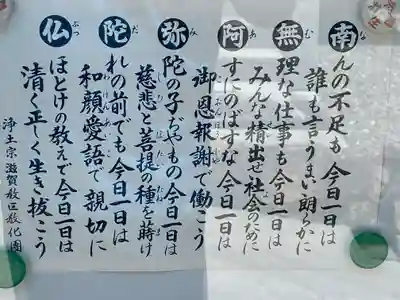 南んの不足も 今日一日は
誰も言うまい朗らかに
無理な仕事も 今日一日は
みんな精出せ社会のために
阿すにのばすな 今日一日は
御恩報謝で働こう
弥陀の子だやもの今日一日は
慈悲と菩提の種を蒔け
陀れの前でも 今日一日は
和顔愛語で 親切に
仏ほとけの教えで 今日一日は
清く正しく生き抜こう
浄土宗滋賀教区教化團